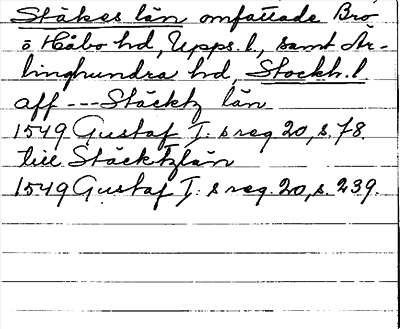 Stäkes län omfattade Bro
o Håbo hd, Upps. l., samt Är-
linghundra hd, Stockh. l
aff --- Stäcktz län
1549 Gustaf I:s reg. 20, s. 78.
till Stäcktzlän
1549 Gustaf I:s reg. 20, s. 239.